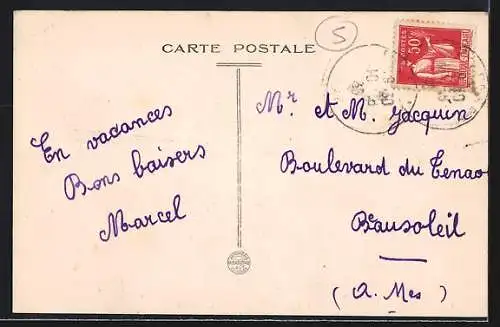 CARTE POSTALE
5
POSTES
50c
En vacances
Bons baisers
Marcel
Mr et M. Jacquin
Boulevard du Tenao
Beausoleil
(A. Mes)